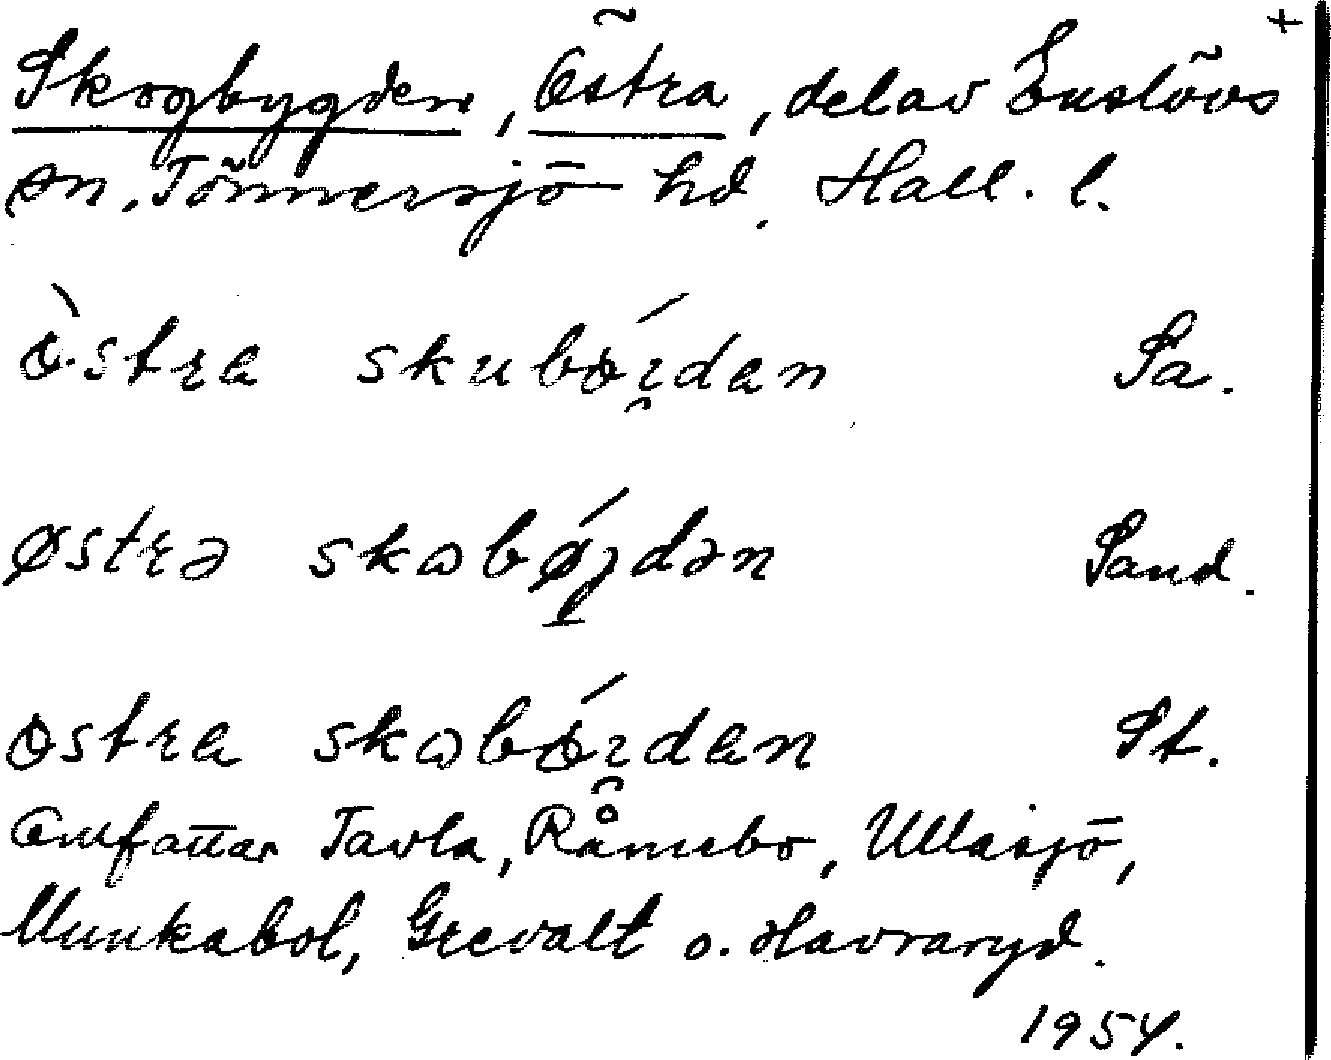 +
Skogbygden, Östra, del av Enslövs
sn. Tönnersjö hd. Hall. l.
ö̀stra skubö́i̯dan Sa.
østrə skɷbǿjdən Sand.
östra skɷbö́i̯dan St.
Omfattar Tavla, Råmebo, Ullasjö,
Munkabol, Grevalt o. Havraryd.
1954.